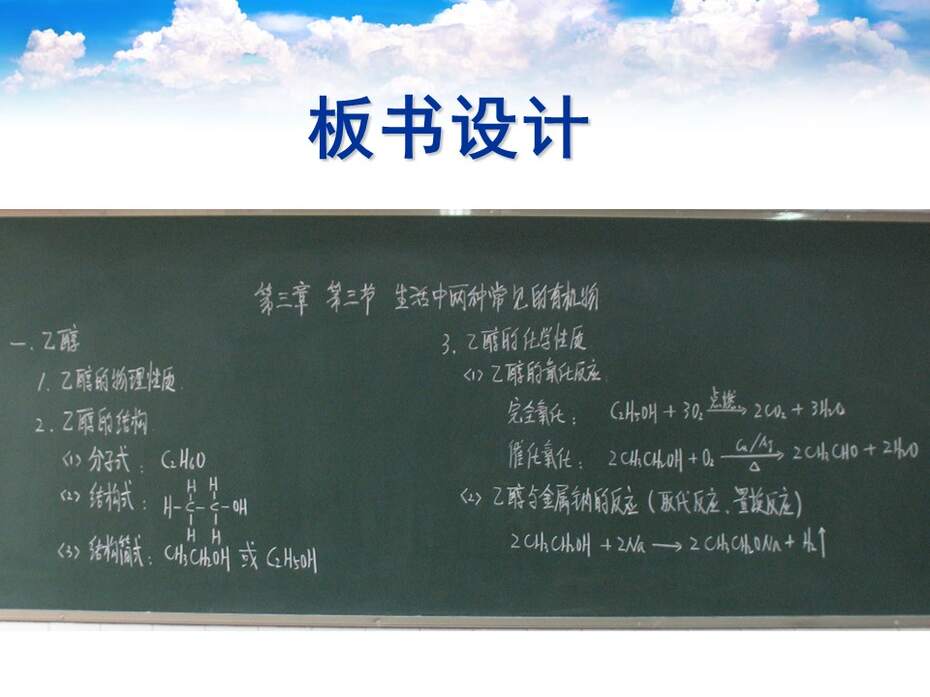 板书设计
第三章 第三节 生活中两种常见的有机物
一. 乙醇
1. 乙醇的物理性质
2. 乙醇的结构
(1) 分子式: C₂H₆O
(2) 结构式:
H H
H-C-C-OH
H H
(3) 结构简式: CH₃CH₂OH 或 C₂H₅OH
3. 乙醇的化学性质
(1) 乙醇的氧化反应
完全氧化: C₂H₅OH + 3O₂ 点燃→ 2CO₂ + 3H₂O
催化氧化: 2CH₃CH₂OH + O₂ Cu/Ag→△ 2CH₃CHO + 2H₂O
(2) 乙醇与金属钠的反应 (取代反应、置换反应)
2CH₃CH₂OH + 2Na → 2CH₃CH₂ONa + H₂↑